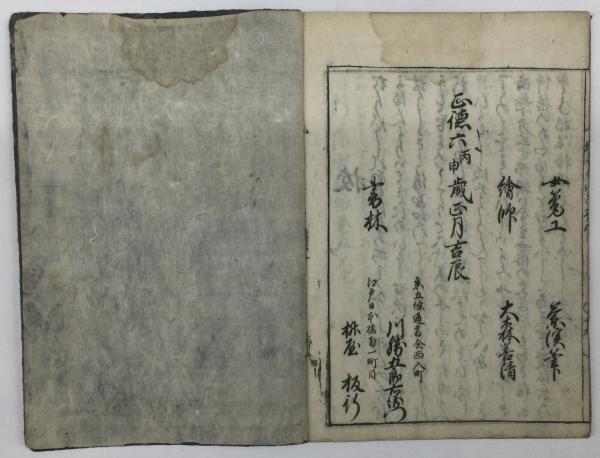 女筆工　
繪師　大森善清
正德六丙申歲正月吉辰
京五條通高倉西入町
書林　川勝五郎右衛門
江戸日本橋南一町目
板行